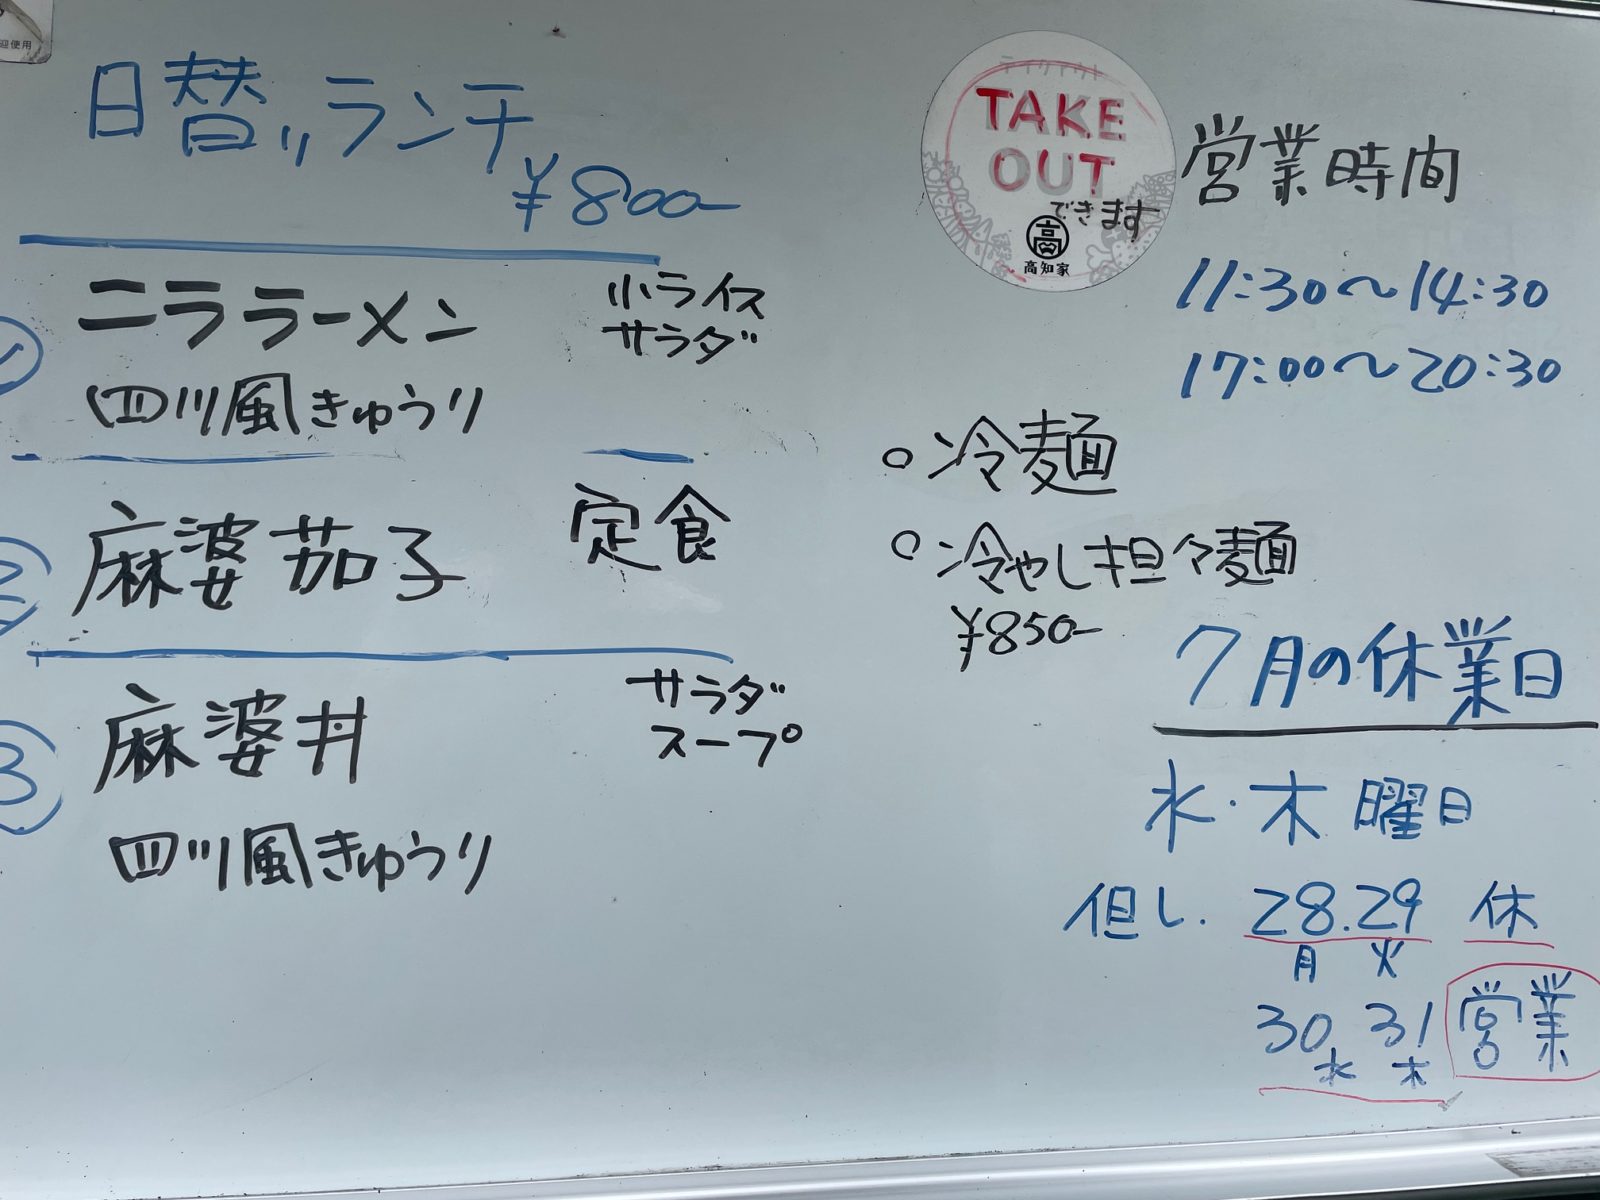 迎使用
日替りランチ
¥800-
① ニララーメン 小ライス
サラダ
四川風きゅうり
② 麻婆茄子 定食
③ 麻婆丼 サラダ
スープ
四川風きゅうり
テイクアウト
TAKE
OUT
できます
高
高知家
営業時間
11:30〜14:30
17:00〜20:30
○冷麺
○冷やし担々麺
¥850-
7月の休業日
水・木曜日
但し. 28.29 休
月 火
30 31 営業
水 木